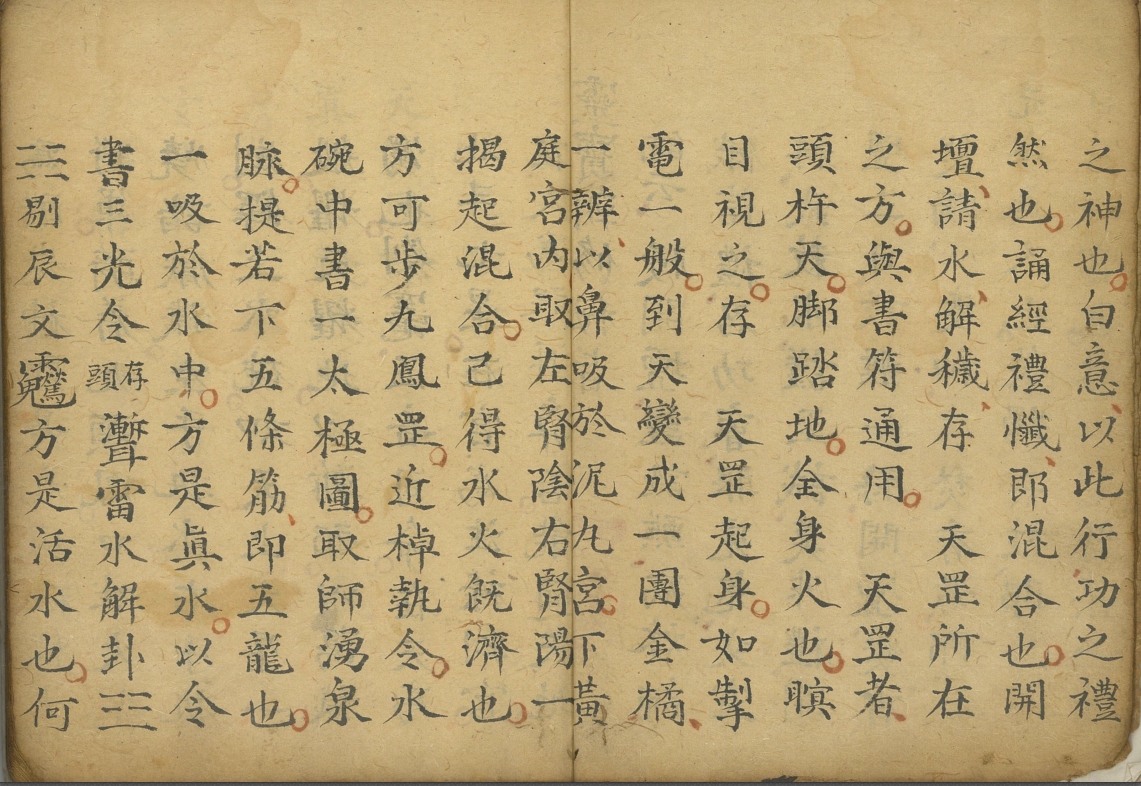 之神也。白意、以此行功之禮
然也。誦經禮懺、即混合也。開
壇、請水、解穢、存 天罡所在
之方。與書符通用。 天罡者、
頭杵天。脚踏地。全身火也。瞑
目視之。存 天罡起身。如掣
電一般。到天變成一團金橘、
一辧、以鼻吸於泥九宮。下黃
庭宮內取左腎陰右腎陽一
揭起混合。己得水火既濟也。
方可步九鳳罡。近棹執令。水
碗中書一太極圖。取師湧泉
脉。提若下五條筋、即五龍也。
一吸於水中。方是眞水。以令
書三光令存頭聻雷水解卦
剔辰文方是活水也。何